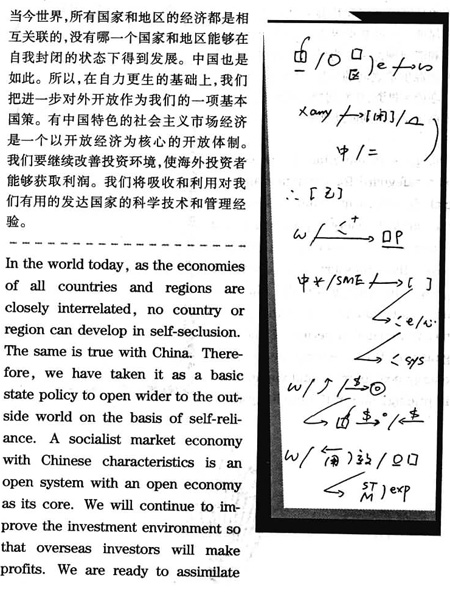 当今世界，所有国家和地区的经济都是相
互关联的，没有哪一个国家和地区能够在
自我封闭的状态下得到发展。中国也是
如此。所以，在自力更生的基础上，我们
把进一步对外开放作为我们的一项基本
国策。有中国特色的社会主义市场经济
是一个以开放经济为核心的开放体制。
我们要继续改善投资环境，使海外投资者
能够获取利润。我们将吸收和利用对我
们有用的发达国家的科学技术和管理经
验。
In the world today, as the economies
of all countries and regions are
closely interrelated, no country or
region can develop in self-seclusion.
The same is true with China. There-
fore, we have taken it as a basic
state policy to open wider to the out-
side world on the basis of self-reli-
ance. A socialist market economy
with Chinese characteristics is an
open system with an open economy
as its core. We will continue to im-
prove the investment environment so
that overseas investors will make
profits. We are ready to assimilate
中 / =
∴ [己]
W /
中 * / SME [ ]
sys
W / ↑ / $
W /
ST
M ) exp